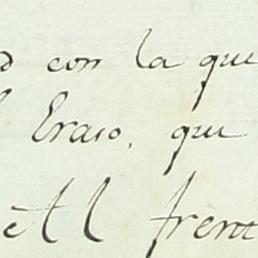 con la que
Eraso, que
Al frent